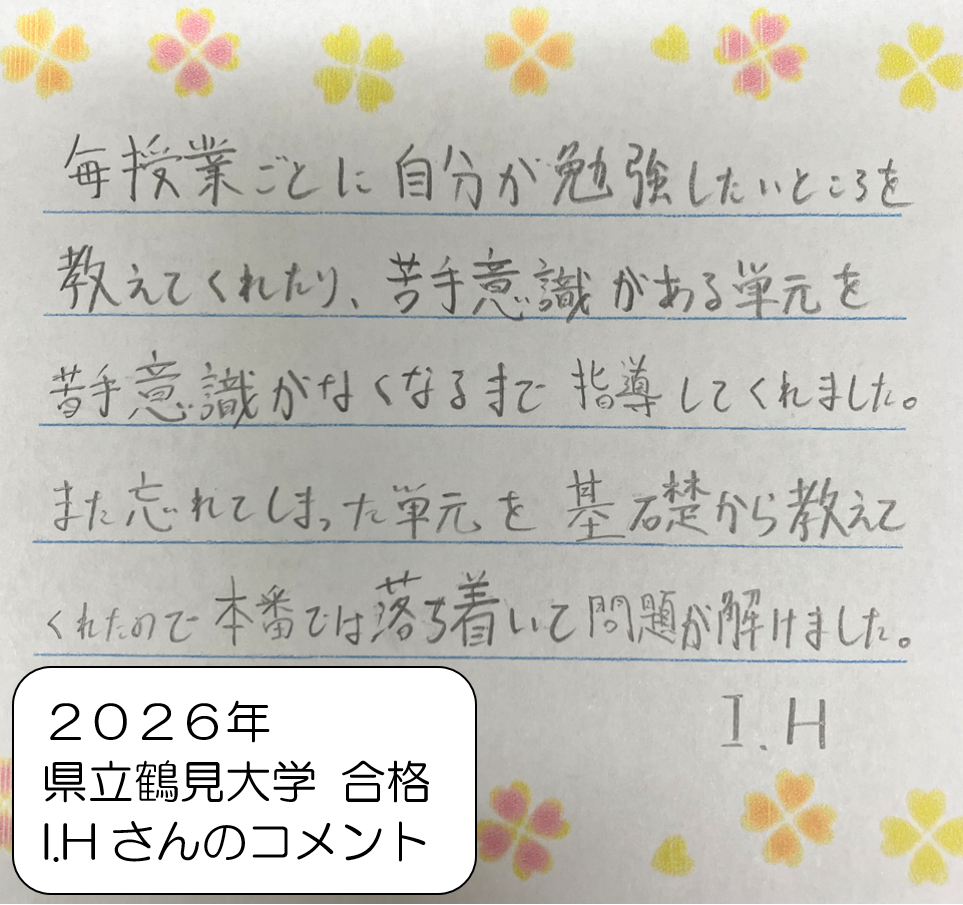 毎授業ごとに自分が勉強したいところを
教えてくれたり、苦手意識がある単元を
苦手意識がなくなるまで指導してくれました。
また忘れてしまった単元を基礎から教えて
くれたので本番では落ち着いて問題が解けました。
I.H
２０２６年
県立鶴見大学 合格
I.Hさんのコメント